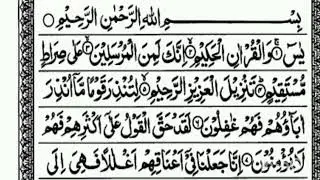 بِسْمِ اللهِ الرَّحْمٰنِ الرَّحِيْمِ ○
يٰسٓ ۚ وَالْقُرْاٰنِ الْحَكِيْمِ ۙ اِنَّكَ لَمِنَ الْمُرْسَلِيْنَ ۙ عَلٰى صِرَاطٍ
مُّسْتَقِيْمٍ ؕ تَنْزِيْلَ الْعَزِيْزِ الرَّحِيْمِ ۙ لِتُنْذِرَ قَوْمًا مَّاۤ اُنْذِرَ
اٰبَآؤُهُمْ فَهُمْ غٰفِلُوْنَ ○ لَقَدْ حَقَّ الْقَوْلُ عَلٰٓى اَكْثَرِهِمْ فَهُمْ
لَا يُؤْمِنُوْنَ ○ اِنَّا جَعَلْنَا فِيْۤ اَعْنَاقِهِمْ اَغْلٰلًا فَهِيَ اِلَى